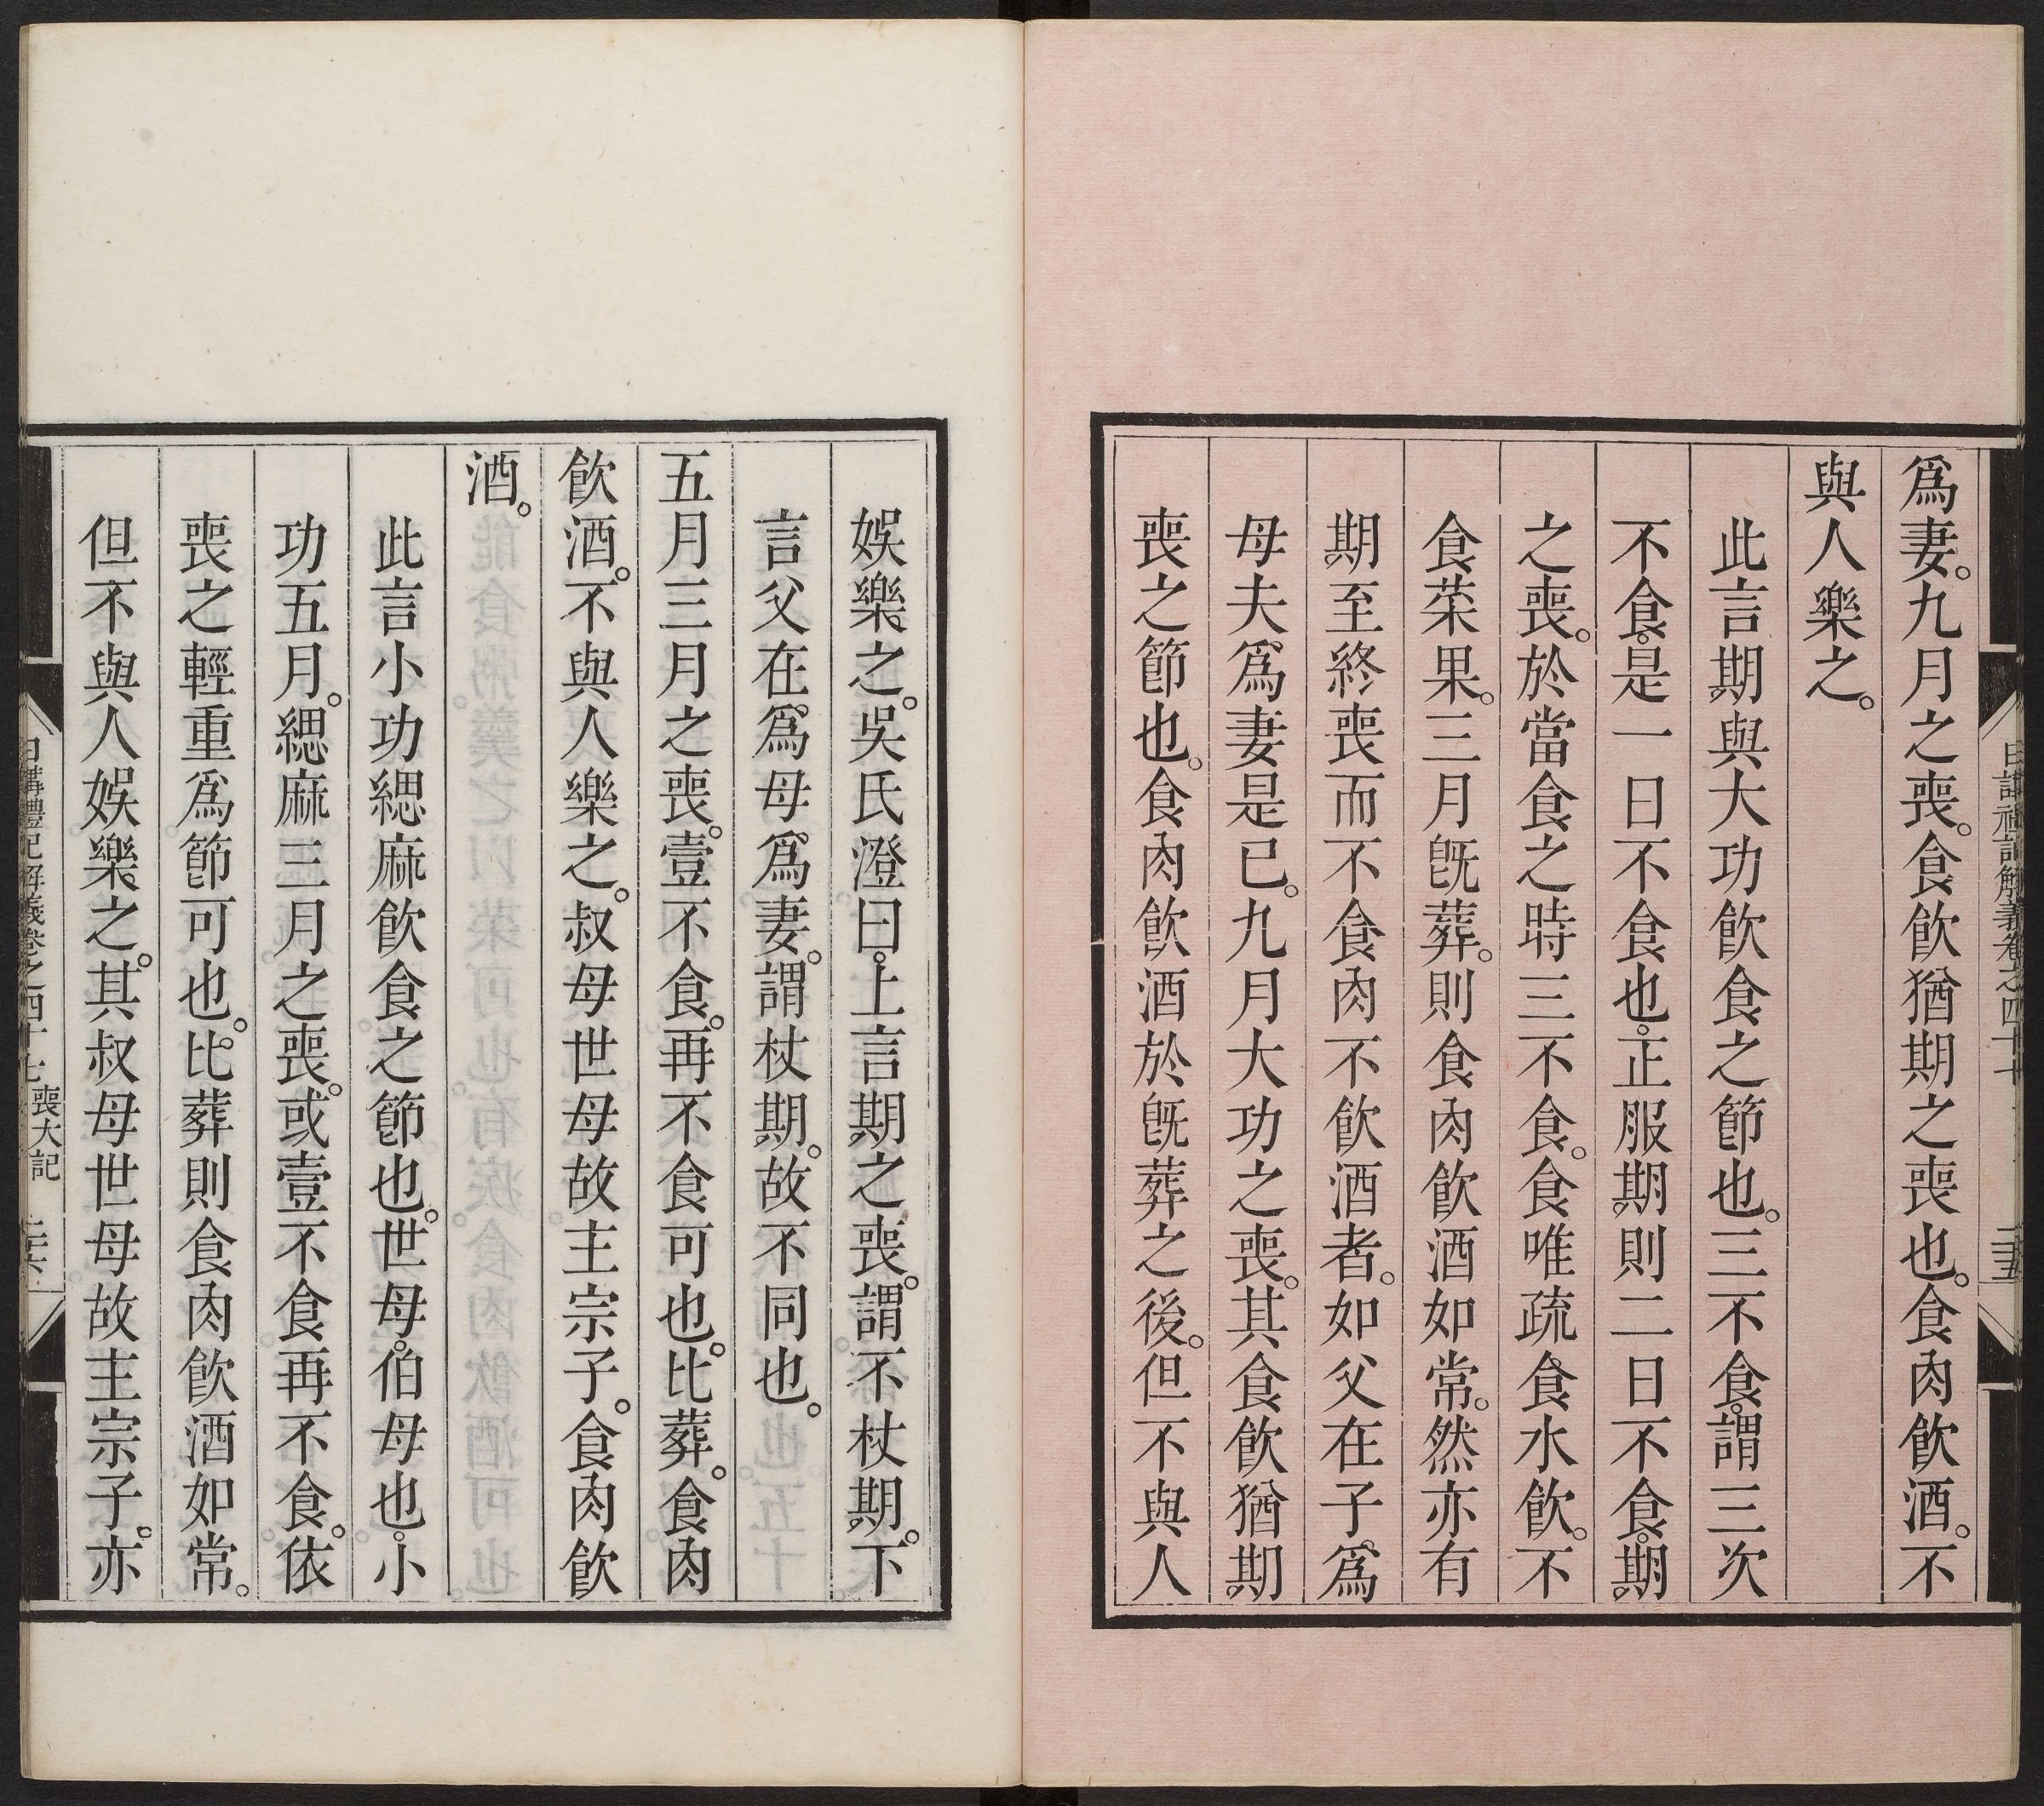 爲妻。九月之喪。食飲猶期之喪也。食肉飲酒。不
與人樂之。
此言期與大功飲食之節也。三不食。謂三次
不食。是一日不食也。正服期。則二日不食。期
之喪。於當食之時三不食。食唯疏食水飲。不
食菜果。三月旣葬。則食肉飲酒如常。然亦有
期至終喪而不食肉不飲酒者。如父在子。爲
母夫。爲妻是已。九月大功之喪。其食飲猶期
喪之節也。食肉飲酒於旣葬之後。但不與人
娛樂之。吳氏澄曰。上言期之喪。謂不杖期。下
言父在。爲母。爲妻。謂杖期。故不同也。
五月三月之喪。壹不食。再不食可也。比葬。食肉
飲酒。不與人樂之。叔母世母故主宗子。食肉飲
酒。
此言小功緦麻飲食之節也。世母。伯母也。小
功五月。緦麻三月之喪。或壹不食再不食。依
喪之輕重爲節可也。比葬則食肉飲酒如常。
但不與人娛樂之。其叔母世母故主宗子。亦
日講禮記解義卷之四十七 喪大記